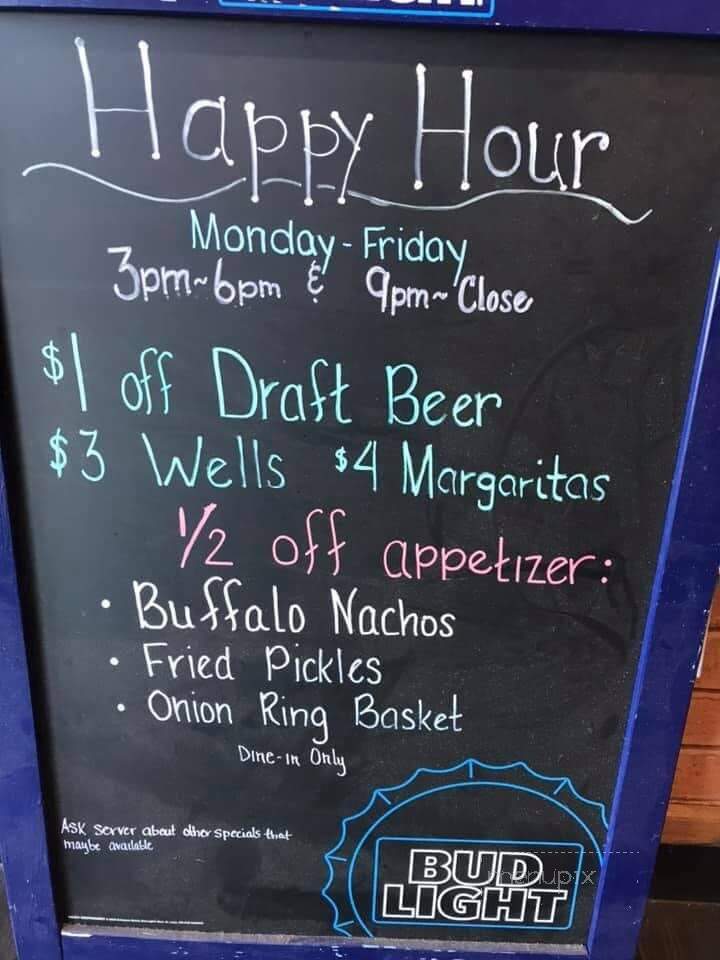 Happy Hour
Monday - Friday
3pm~6pm & 9pm~Close
$1 off Draft Beer
$3 Wells $4 Margaritas
1/2 off appetizer:
• Buffalo Nachos
• Fried Pickles
• Onion Ring Basket
Dine-in Only
ASK Server about other specials that
maybe available
BUD
LIGHT
menupix